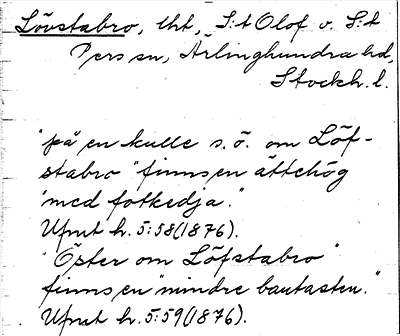 Lövstabro, lht, S:t Olof o. S:t
Pers sn, Ärlinghundra hd,
Stockh. l.
"på en kulle s.ö. om Löf-
stabro" finns en ättehög
"med fotkedja."
Ufmt h. 5:58 (1876).
"Öster om Löfstabro"
finns en "mindre bautasten."
Ufmt h. 5:59 (1876).